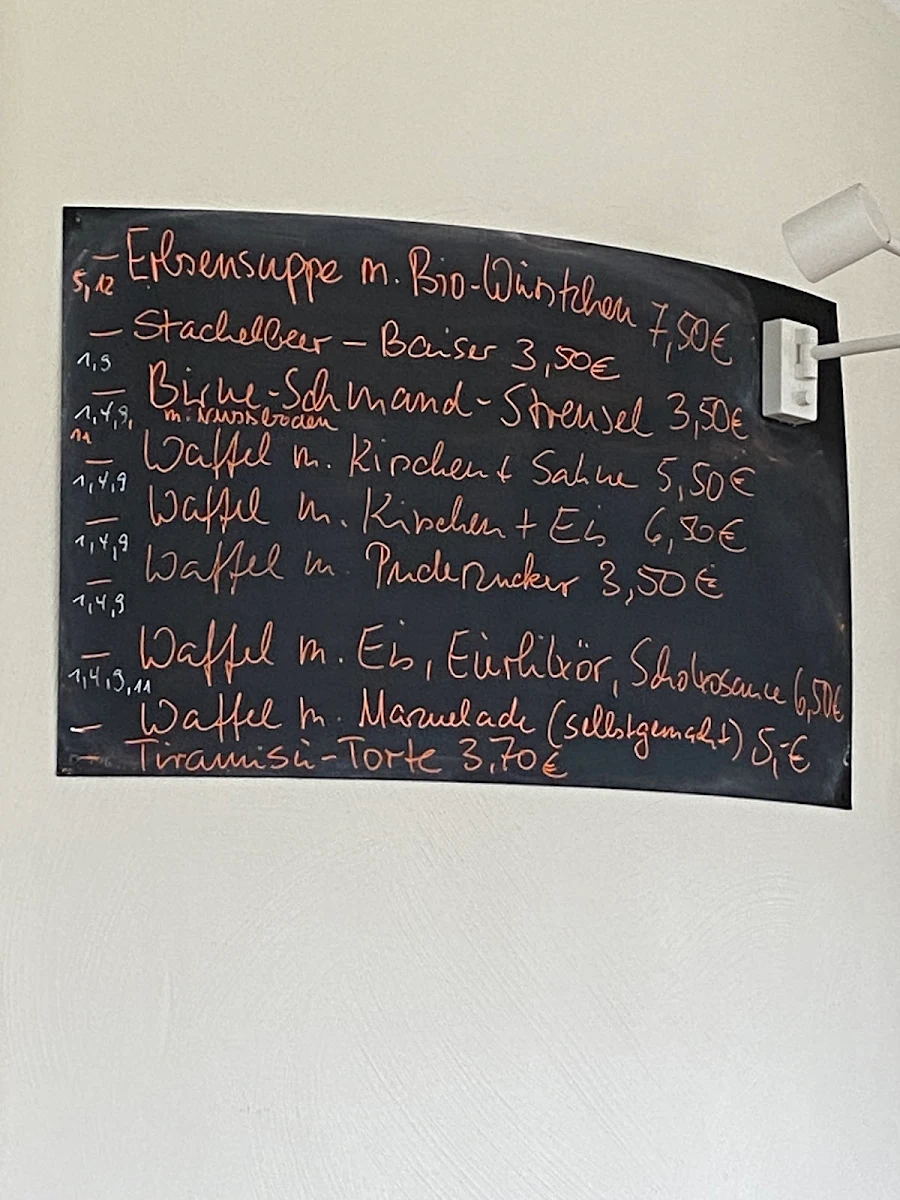 – Erbsensuppe m. Bio-Würstchen 7,50€
5,12
– Stachelbeer – Baiser 3,50€
1,9
– Birne-Schmand-Streusel 3,50€
1,4,9, m. Nussboden
11
– Waffel m. Kirschen + Sahne 5,50€
1,4,9
– Waffel m. Kirschen + Eis 6,50€
1,4,9
– Waffel m. Puderzucker 3,50€
1,4,9
– Waffel m. Eis, Eierlikör, Schokosauce 6,50€
1,4,9,11
– Waffel m. Marmelade (selbstgemacht) 5,-€
– Tiramisu-Torte 3,70€